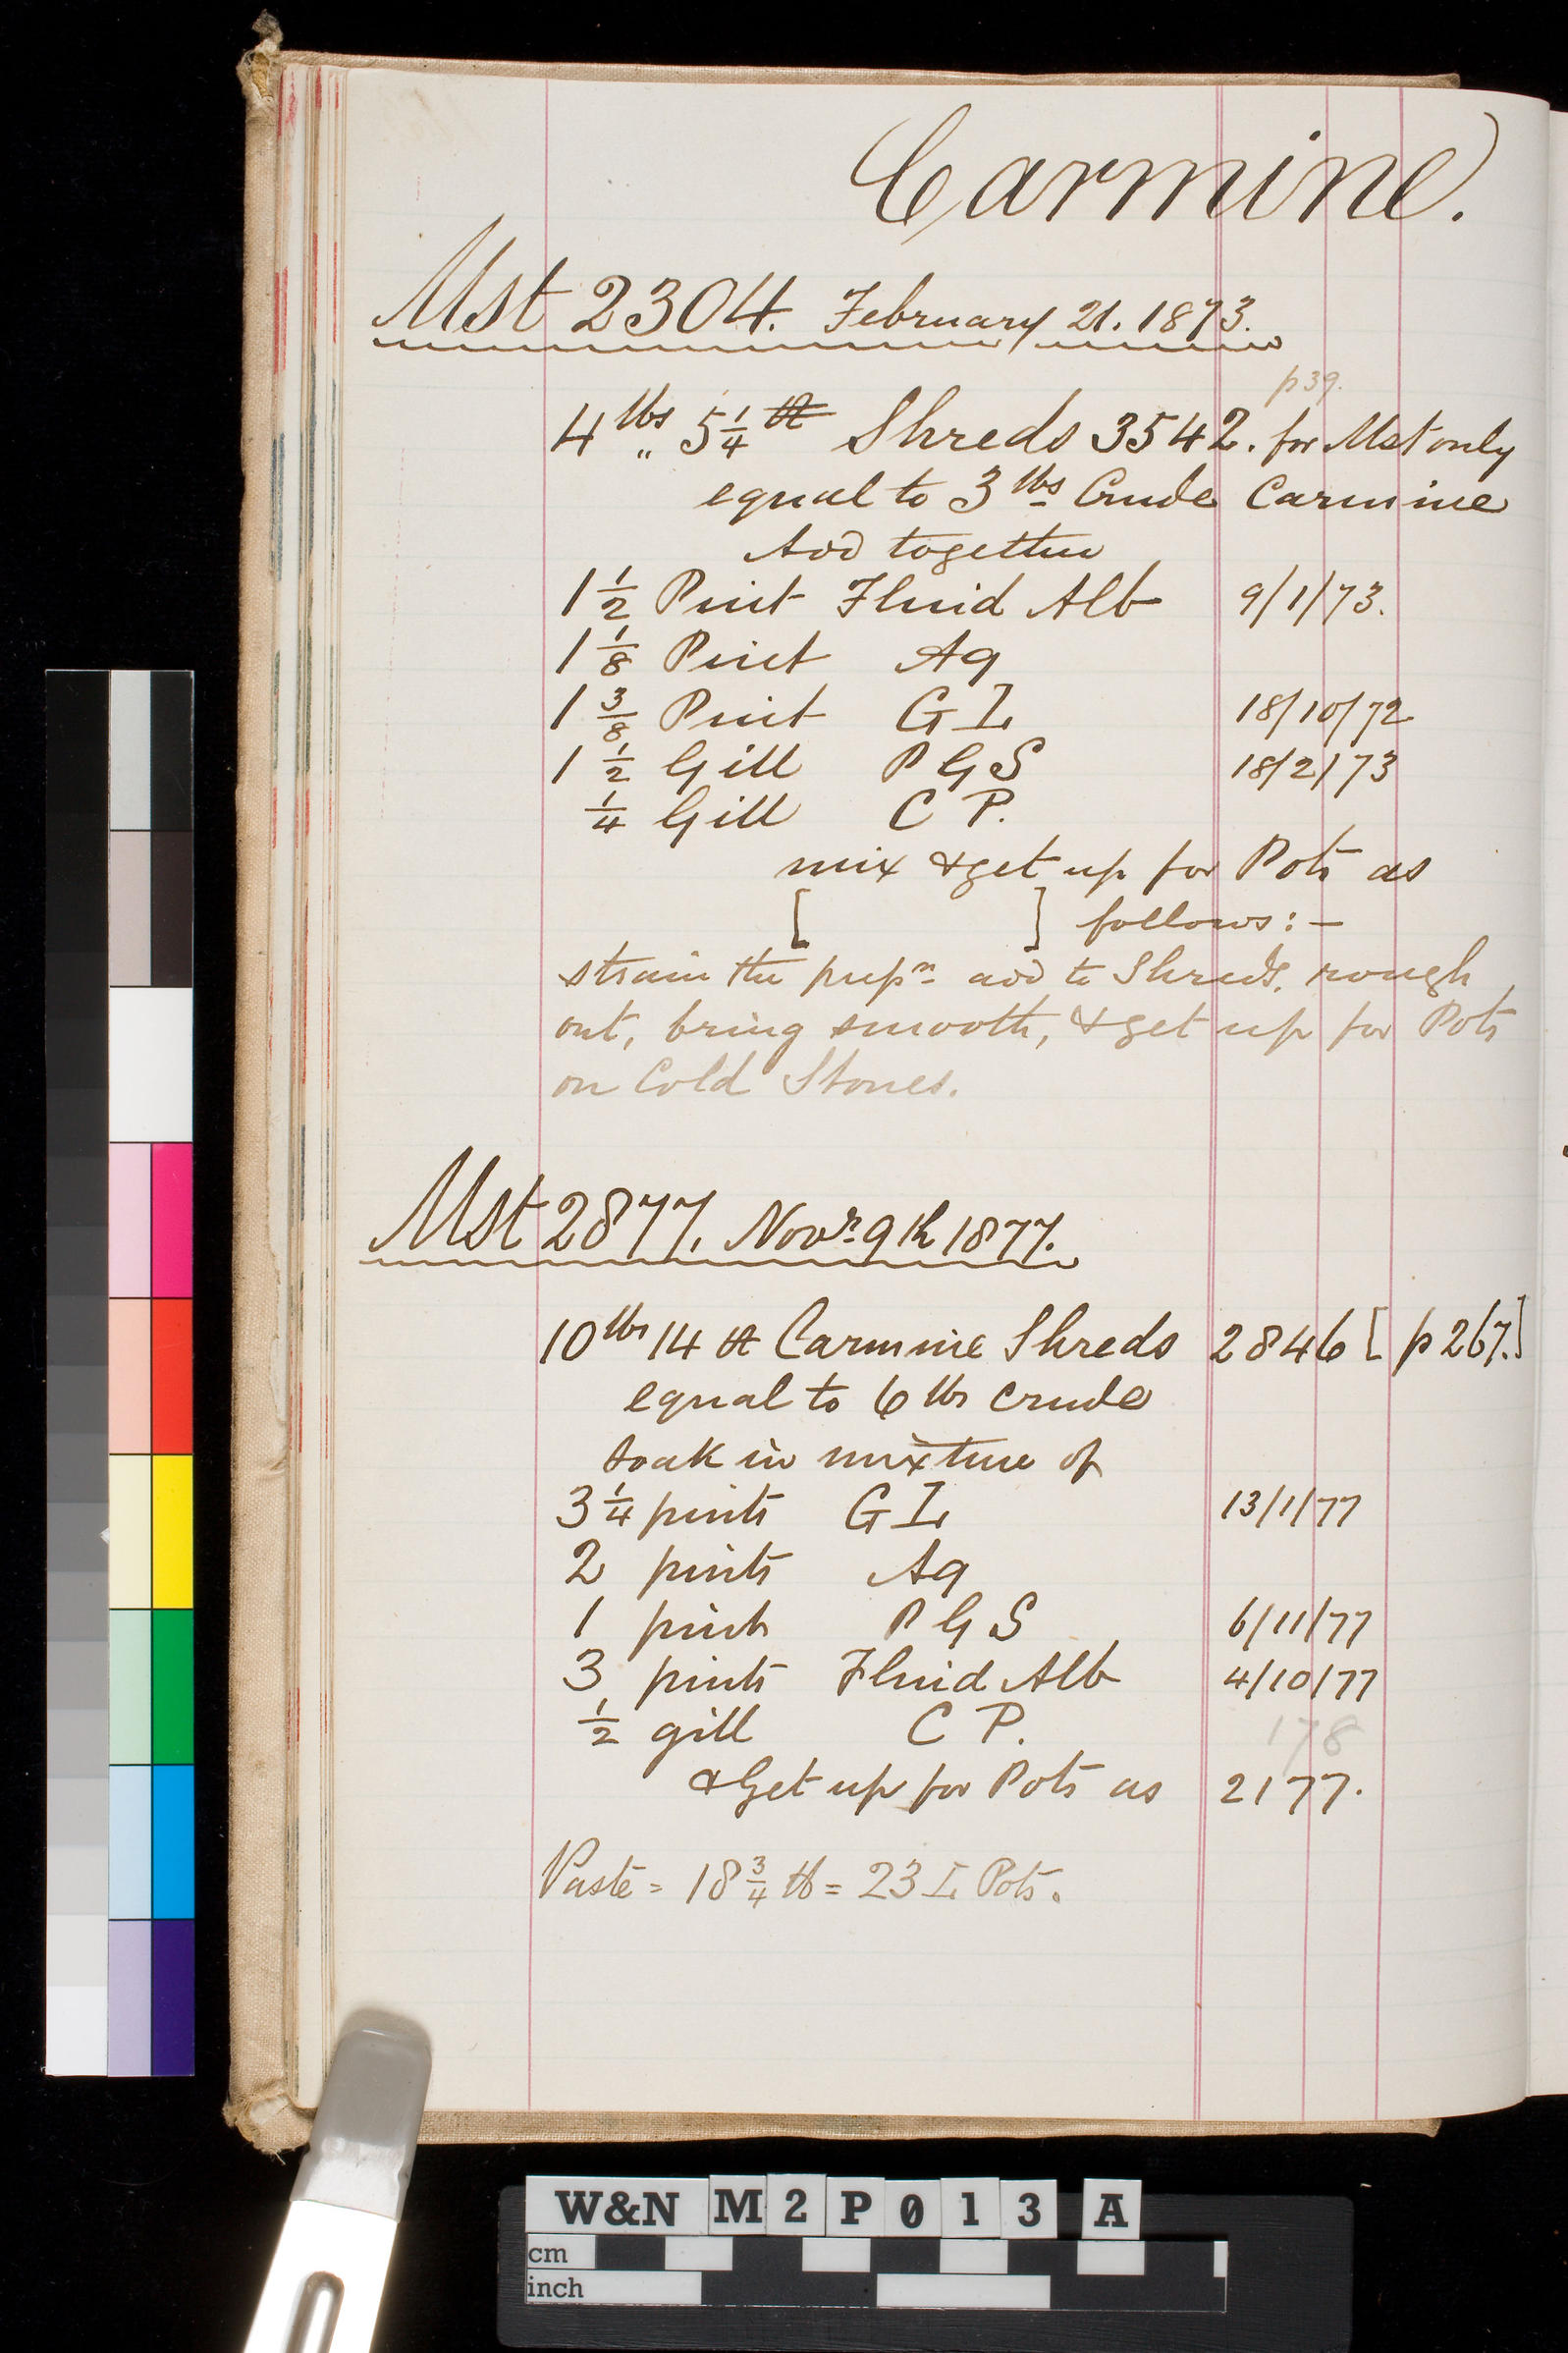 Carmine.
Mst 2304. February 21. 1873.
p39.
4 lbs „ 5 1/4 Shreds 3542. for Mst only
equal to 3 lbs Crude Carmine
Add together
1 1/2 Pint Fluid Alb 9/1/73.
1 1/8 Pint Aq
1 3/8 Pint G L 18/10/72
1 1/2 Gill P G S 18/2/73
1/4 Gill C P.
mix & get up for Pots as
[ ] follows: —
strain the prepn add to Shreds, rough
out, bring smooth, & get up for Pots
on Cold Stones.
Mst 2877. Novr. 9th 1877.
10 lbs 14 Carmine Shreds 2846 [p 267.]
equal to 6 lbs crude
soak in mixture of
3 1/4 pints G L 13/1/77
2 pints Aq
1 pint P G S 6/11/77
3 pints Fluid Alb 4/10/77
1/2 gill C P.
178
& Get up for Pots as 2177.
Paste = 18 3/4 lb = 23 L Pots.
W&N M2P013 A
cm
inch